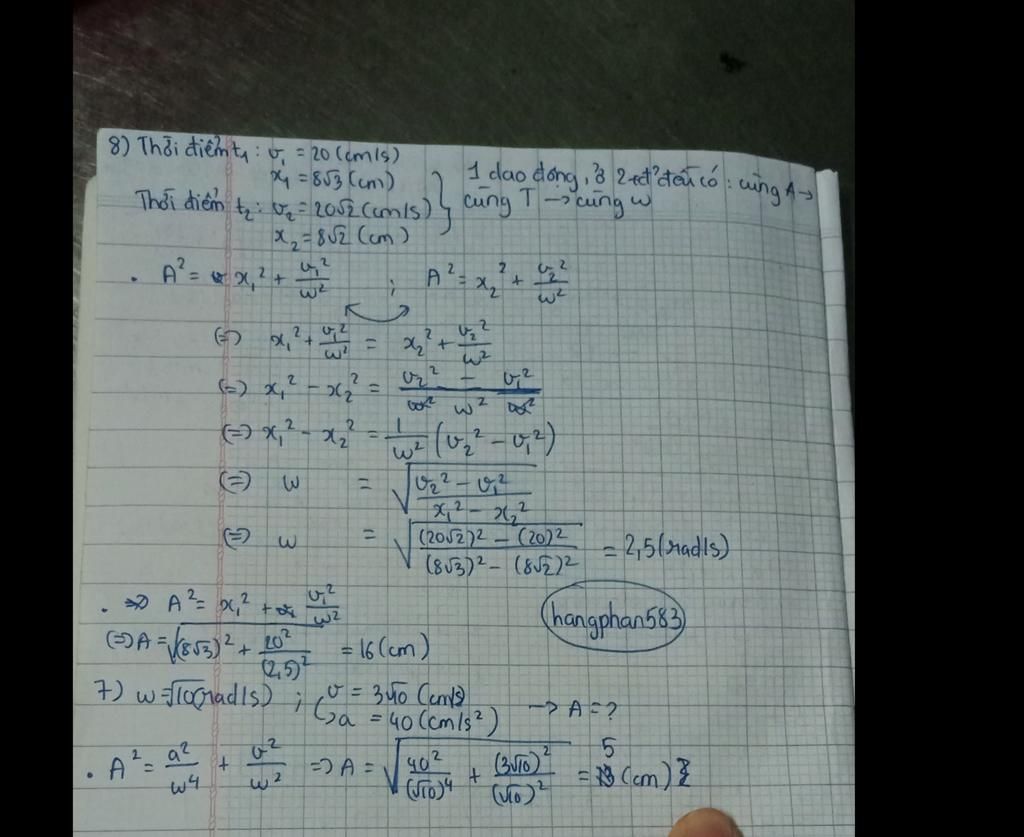 8) Thời điểm t₁ : v₁ = 20 (cm/s)
x₁ = 8√3 (cm)
Thời điểm t₂ : v₂ = 20√2 (cm/s)
x₂ = 8√2 (cm)
1 dao động, ở 2 tđ' đều có : cùng A →
cùng T → cùng ω
. A² = x₁² + v₁²/ω² ; A² = x₂² + v₂²/ω²
(=) x₁² + v₁²/ω² = x₂² + v₂²/ω²
(=) x₁² - x₂² = (v₂² - v₁²)/ω²
(=) x₁² - x₂² = 1/ω² (v₂² - v₁²)
(=) ω = √((v₂² - v₁²)/(x₁² - x₂²))
(=) ω = √(((20√2)² - (20)²)/((8√3)² - (8√2)²)) = 2,5 (rad/s)
. => A² = x₁² + v₁²/ω²
(=) A = √((8√3)² + 20²/(2,5)²) = 16 (cm)
hangphan583
7) ω = √10 (rad/s) ; v = 3√10 (cm/s)
a = 40 (cm/s²) → A = ?
. A² = a²/ω⁴ + v²/ω² => A = √(40²/(√10)⁴ + (3√10)²/(√10)²) = 5 (cm)